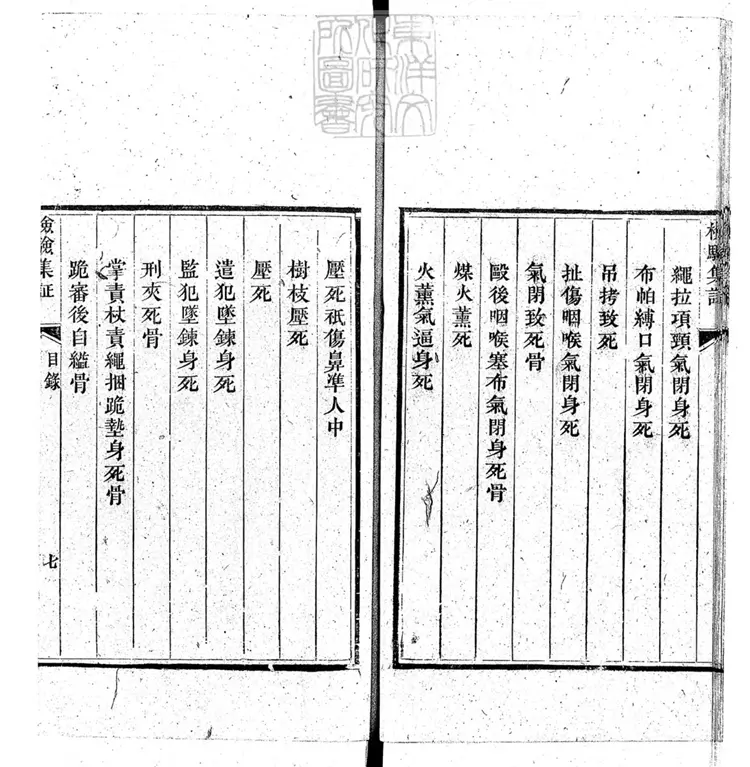 東洋文
化研究
所圖書
檢驗集証
繩拉項頸氣閉身死
布帕縛口氣閉身死
吊拷致死
扯傷咽喉氣閉身死
氣閉致死骨
毆後咽喉塞布氣閉身死骨
煤火薰死
火薰氣逼身死
壓死祇傷鼻準人中
樹枝壓死
壓死
遣犯墜鍊身死
監犯墜鍊身死
刑夾死骨
掌責杖責繩捆跪墊身死骨
跪審後自縊骨
檢驗集証
目錄
七